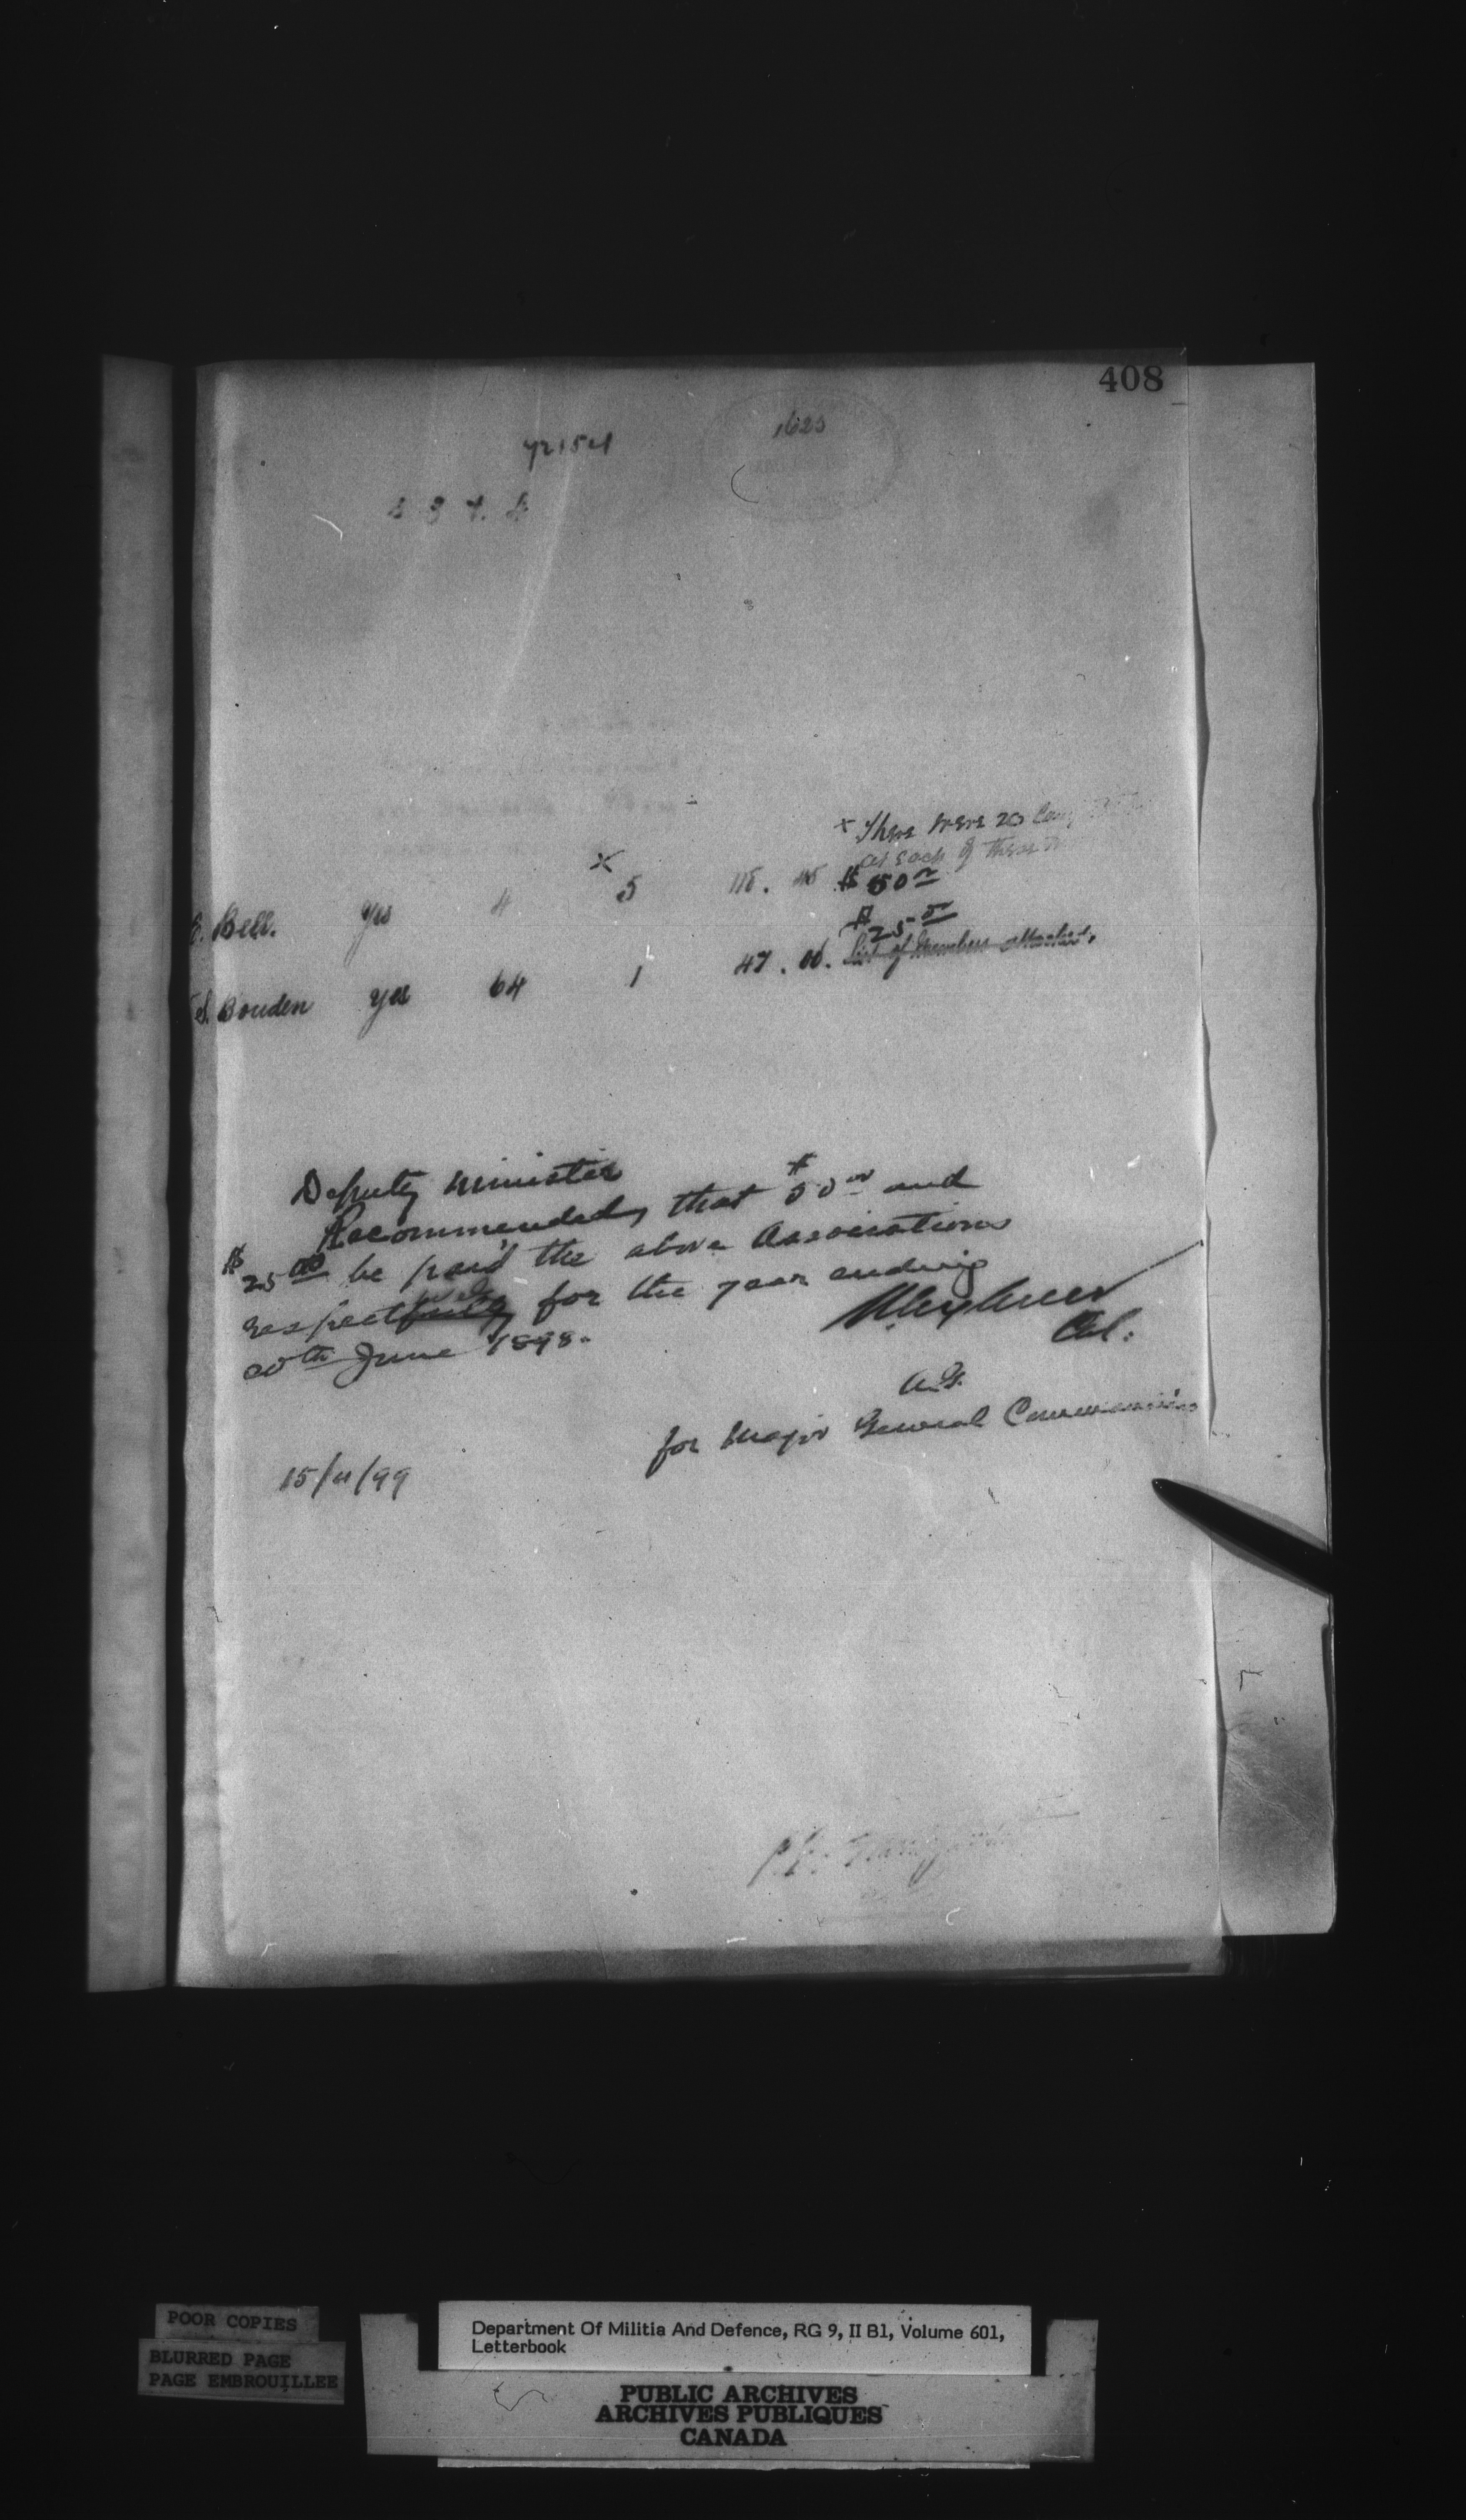 408
1625
72154
+ There were 20
at each of these
$ 50 00
E. Bell. Yes 4 x 5 115. 45
$ 25 00
List of Members attached.
S. Bouden Yes 64 1 47. 00.
Deputy Minister
Recommended, that $ 50 00 and
$ 25 00 be paid the above Associations
respectfully for the year ending
30th June 1898.
Col.
A.G.
for Major General Commanding
15/4/99
POOR COPIES
BLURRED PAGE
PAGE EMBROUILLEE
Department Of Militia And Defence, RG 9, II B1, Volume 601,
Letterbook
PUBLIC ARCHIVES
ARCHIVES PUBLIQUES
CANADA